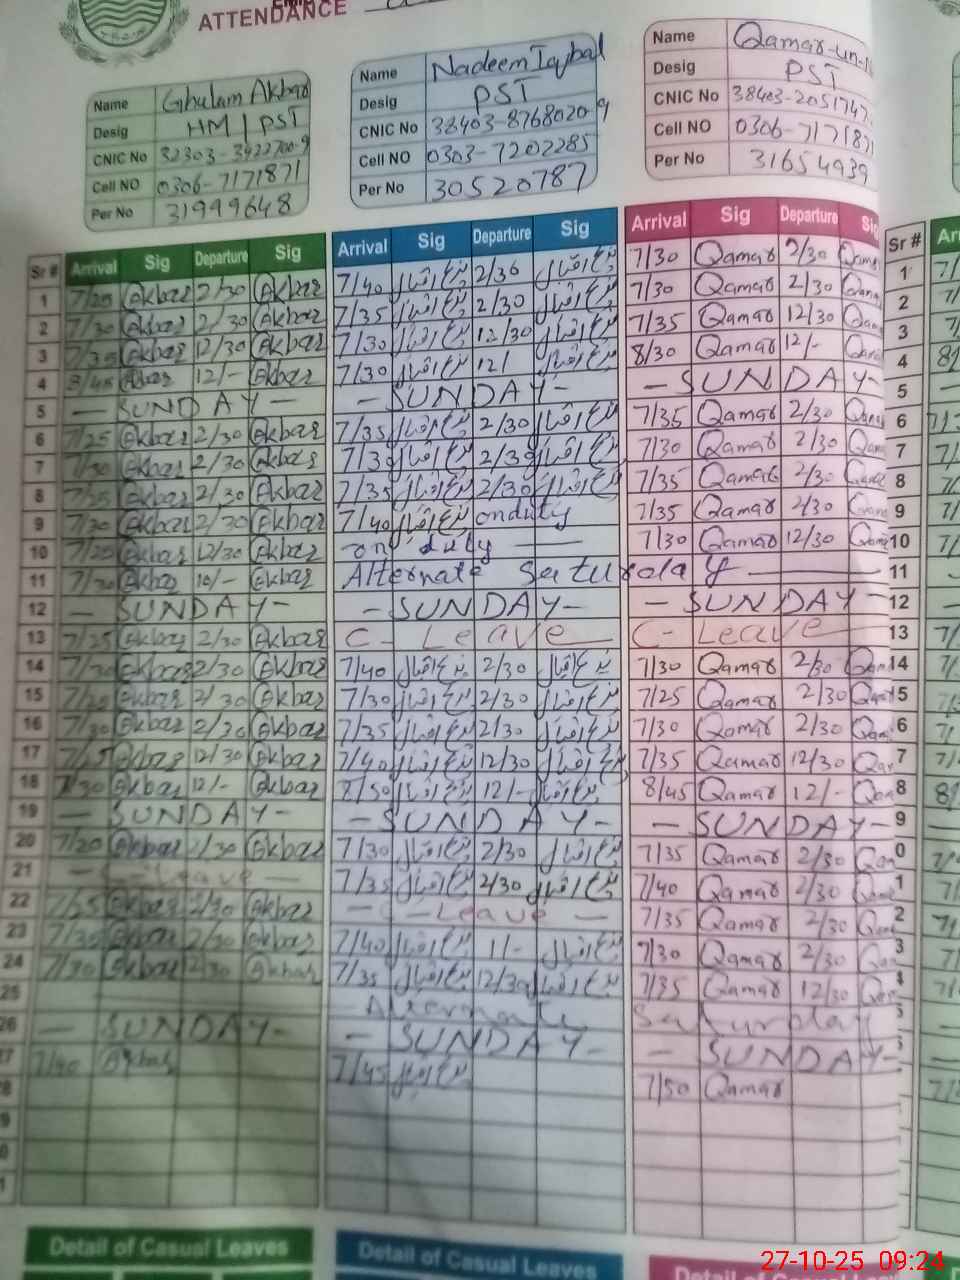 ATTENDANCE
Name Ghulam Akbar
Desig HM / PST
CNIC No 32303-3922700-9
Cell NO 0306-7171871
Per No 31999648
Name Nadeem Iqbal
Desig PST
CNIC No 38403-8768020-9
Cell NO 0303-7202285
Per No 30520787
Name Qamar-un-N
Desig PST
CNIC No 38403-2051747
Cell NO 0306-7171871
Per No 31654939
Sr # Arrival Sig Departure Sig Arrival Sig Departure Sig Arrival Sig Departure Si Sr # Ar
1 7/25 Akbar 2/30 Akbar 7/40 ندیم اقبال 2/30 ندیم اقبال 7/30 Qamar 2/30 Qamar 1
2 7/30 Akbar 2/30 Akbar 7/35 ندیم اقبال 2/30 ندیم اقبال 7/30 Qamar 2/30 Qama 2
3 7/35 Akbar 12/30 Akbar 7/30 ندیم اقبال 12/30 ندیم اقبال 7/35 Qamar 12/30 Qam 3
4 8/45 Akbar 12/- Akbar 7/30 ندیم اقبال 12/ ندیم اقبال 8/30 Qamar 12/- Qama 4
5 - SUNDAY - - SUNDAY - - SUNDAY - 5
6 7/25 Akbar 2/30 Akbar 7/35 ندیم اقبال 2/30 ندیم اقبال 7/35 Qamar 2/30 Qama 6
7 7/30 Akbar 2/30 Akbar 7/30 ندیم اقبال 2/30 ندیم اقبال 7/30 Qamar 2/30 Qama 7
8 7/25 Akbar 2/30 Akbar 7/35 ندیم اقبال 2/30 ندیم اقبال 7/35 Qamar 2/30 Qama 8
9 7/30 Akbar 2/30 Akbar 7/40 ندیم اقبال onduty 7/35 Qamar 2/30 Qama 9
10 7/20 Akbar 12/30 Akbar on duty 7/30 Qamar 12/30 Qama 10
11 7/30 Akbar 10/- Akbar Alternate Saturday 11
12 - SUNDAY - - SUNDAY - - SUNDAY - 12
13 7/25 Akbar 2/30 Akbar C- Leave C- Leave 13
14 7/30 Akbar 2/30 Akbar 7/40 ندیم اقبال 2/30 ندیم اقبال 7/30 Qamar 2/30 Qam 14
15 7/20 Akbar 2/30 Akbar 7/30 ندیم اقبال 2/30 ندیم اقبال 7/25 Qamar 2/30 Qama 5
16 7/30 Akbar 2/30 Akbar 7/35 ندیم اقبال 2/30 ندیم اقبال 7/30 Qamar 2/30 Qam 6
17 7/25 Akbar 12/30 Akbar 7/40 ندیم اقبال 12/30 ندیم اقبال 7/35 Qamar 12/30 Qar 7
18 7/30 Akbar 12/- Akbar 8/50 ندیم اقبال 12/- ندیم اقبال 8/45 Qamar 12/- Qam 8
19 - SUNDAY - - SUNDAY - - SUNDAY - 9
20 7/20 Akbar 2/30 Akbar 7/30 ندیم اقبال 2/30 ندیم اقبال 7/35 Qamar 2/30 Qam 0
21 - C - Leave - 7/35 ندیم اقبال 2/30 ندیم اقبال 7/40 Qamar 2/30 Qam 1
22 7/25 Akbar 2/30 Akbar - C - Leave - 7/35 Qamar 2/30 Qam 2
23 7/35 Akbar 2/30 Akbar 7/40 ندیم اقبال 1/- ندیم اقبال 7/30 Qamar 2/30 Qam 3
24 7/30 Akbar 2/30 Akbar 7/35 ندیم اقبال 12/30 ندیم اقبال 7/35 Qamar 12/30 Qam
25 Alternate Saturday
26 - SUNDAY - - SUNDAY - - SUNDAY -
7 7/40 Akbar 7/45 ندیم اقبال 7/50 Qamar
8
9
0
1
Detail of Casual Leaves Detail of Casual Leaves Detail of
27-10-25 09:24